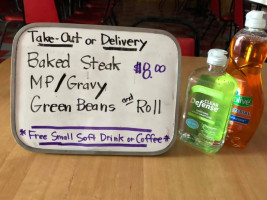 Take-Out or Delivery
Baked Steak $8.00
MP/Gravy
Green Beans and Roll
* Free Small Soft Drink or Coffee *
CLEAN
Defense